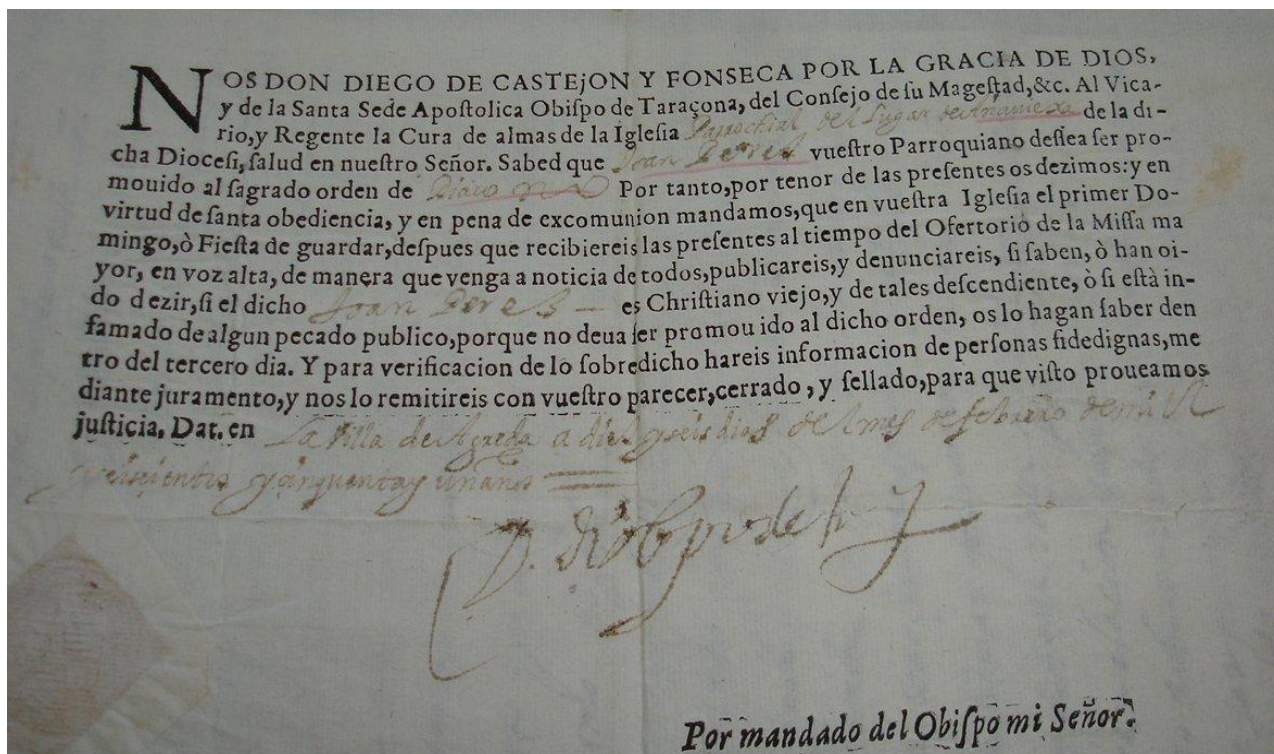 NOS DON DIEGO DE CASTEjON Y FONSECA POR LA GRACIA DE DIOS,
y de la Santa Sede Apoſtolica Obiſpo de Taraçona, del Conſejo de ſu Mageſtad, &c. Al Vica-
rio, y Regente la Cura de almas de la Igleſia Parrochial del lugar de de la di-
cha Dioceſi, ſalud en nueſtro Señor. Sabed que Joan Peres vueſtro Parroquiano deſſea ſer pro-
mouido al ſagrado orden de Diacono Por tanto, por tenor de las preſentes os dezimos: y en
virtud de ſanta obediencia, y en pena de excomunion mandamos, que en vueſtra Igleſia el primer Do-
mingo, ò Fieſta de guardar, deſpues que recibiereis las preſentes al tiempo del Ofertorio de la Miſſa ma
yor, en voz alta, de manera que venga a noticia de todos, publicareis, y denunciareis, ſi ſaben, ò han oi-
do dezir, ſi el dicho Joan Peres — es Chriſtiano viejo, y de tales deſcendiente, ò ſi eſtà in-
famado de algun pecado publico, porque no deua ſer promouido al dicho orden, os lo hagan ſaber den
tro del tercero dia. Y para verificacion de lo ſobredicho hareis informacion de perſonas fidedignas, me
diante juramento, y nos lo remitireis con vueſtro parecer, cerrado, y ſellado, para que viſto proueamos
juſticia. Dat. en La Villa de Agreda a diez y seis dias del mes de febrero de mil
seiscientos y cinquenta y un años
Por mandado del Obiſpo mi Señor.